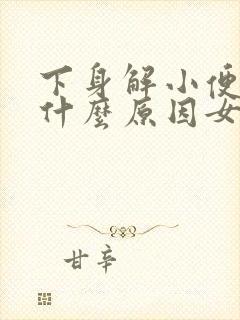 下身解小便
什麼原因女
甘辛